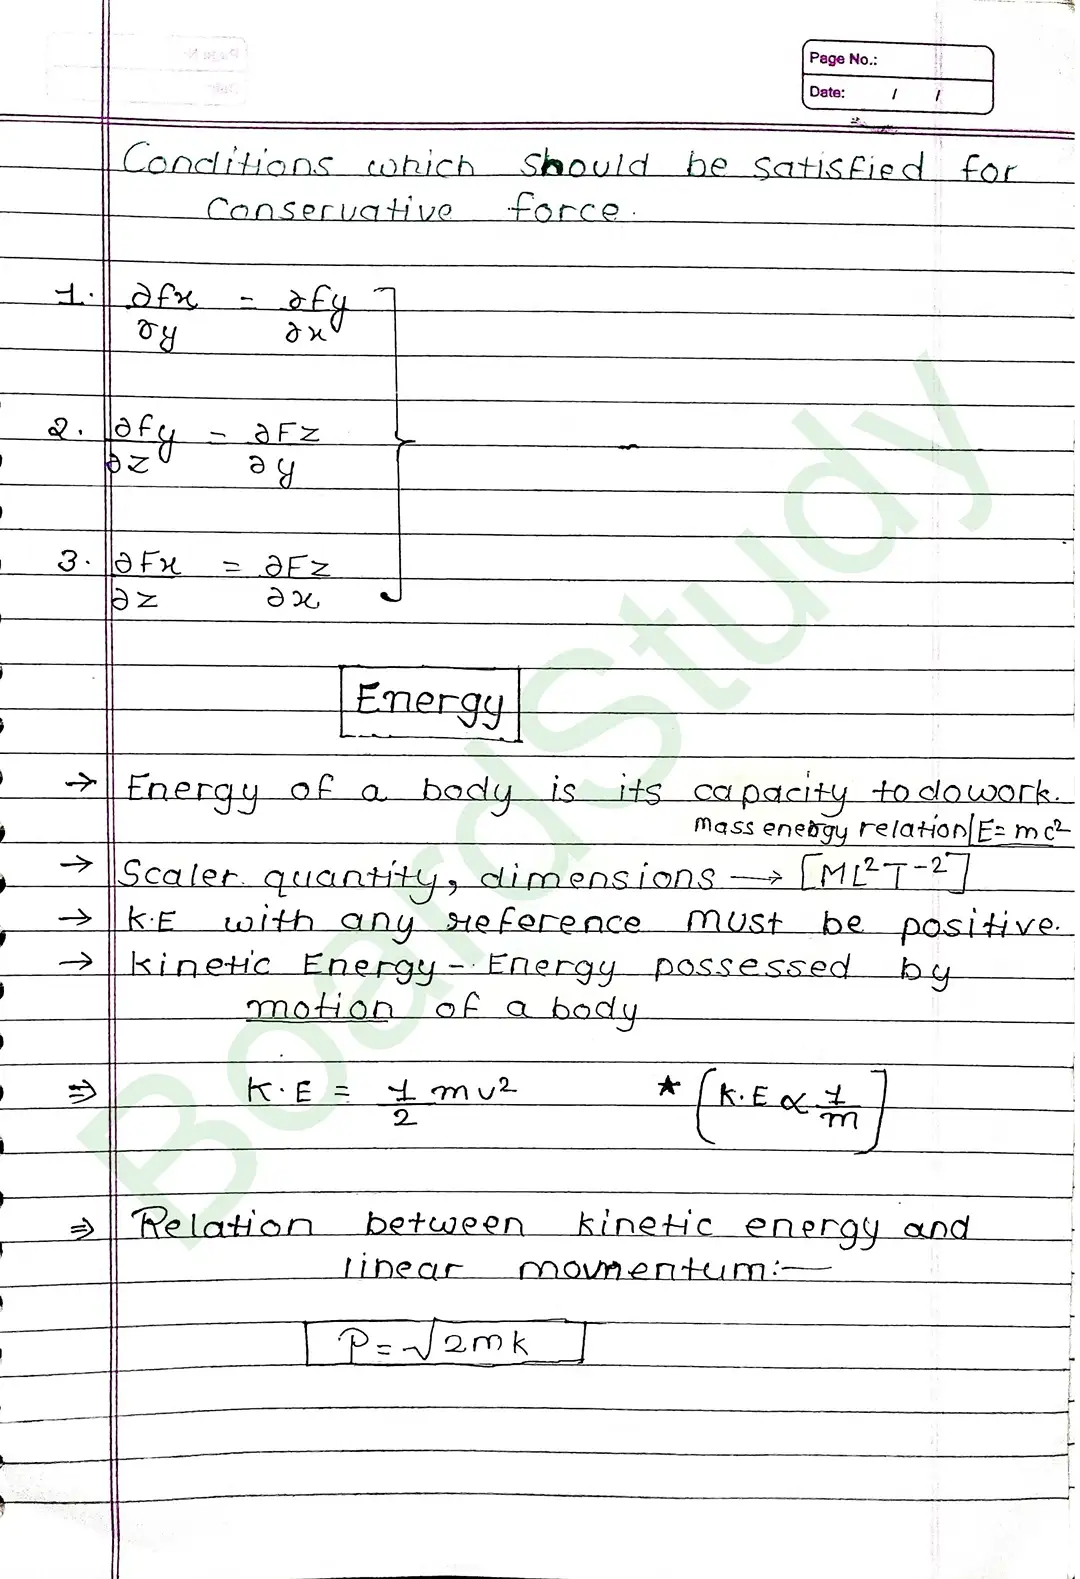 Page No.:
Date: / /
Conditions which should be satisfied for
conservative force.
1. ∂fx/∂y = ∂Fy/∂x
2. ∂fy/∂z = ∂Fz/∂y
3. ∂Fx/∂z = ∂Fz/∂x
Energy
→ Energy of a body is its capacity to do work.
Mass energy relation | E = mc²
→ Scaler quantity, dimensions → [ML²T⁻²]
→ K.E with any reference must be positive.
→ Kinetic Energy - Energy possessed by
motion of a body
⇒ K.E = 1/2 mv² ★ [K.E ∝ 1/m]
⇒ Relation between kinetic energy and
linear movmentum:—
P = √2mk
BoardStudy